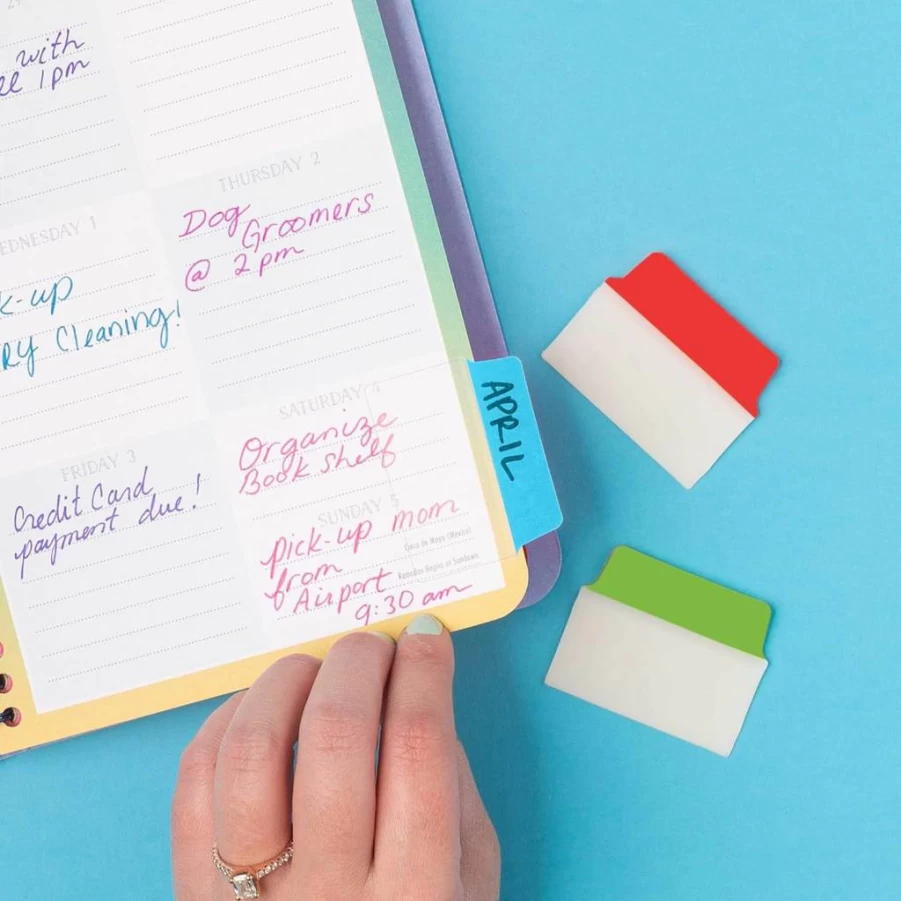 with
1pm
WEDNESDAY 1
-up
Cleaning!
THURSDAY 2
Dog
Groomers
@ 2pm
FRIDAY 3
Credit Card
payment due!
SATURDAY 4
Organize
Book shelf
SUNDAY 5
Pick-up mom
from
Airport
9:30 am
Cinco de Mayo (Mexico)
Ramadan Begins at Sundown
APRIL